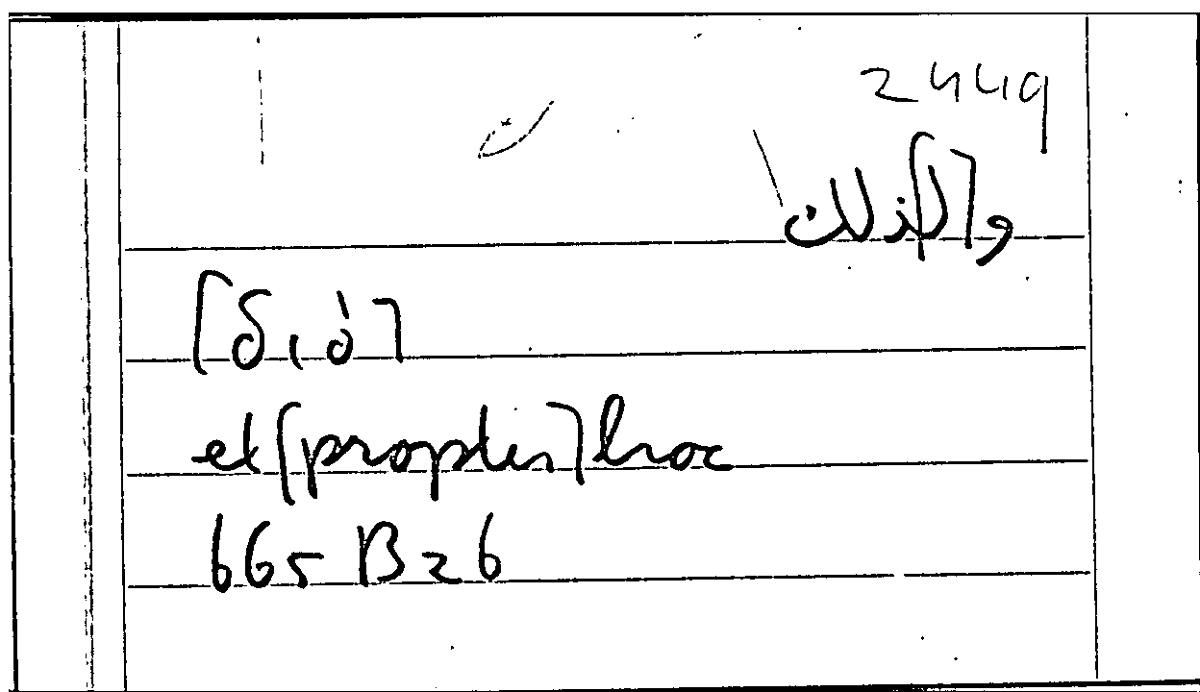 2449
و[ل]ذلك
[διό]
et [propter] hoc
665 B 26